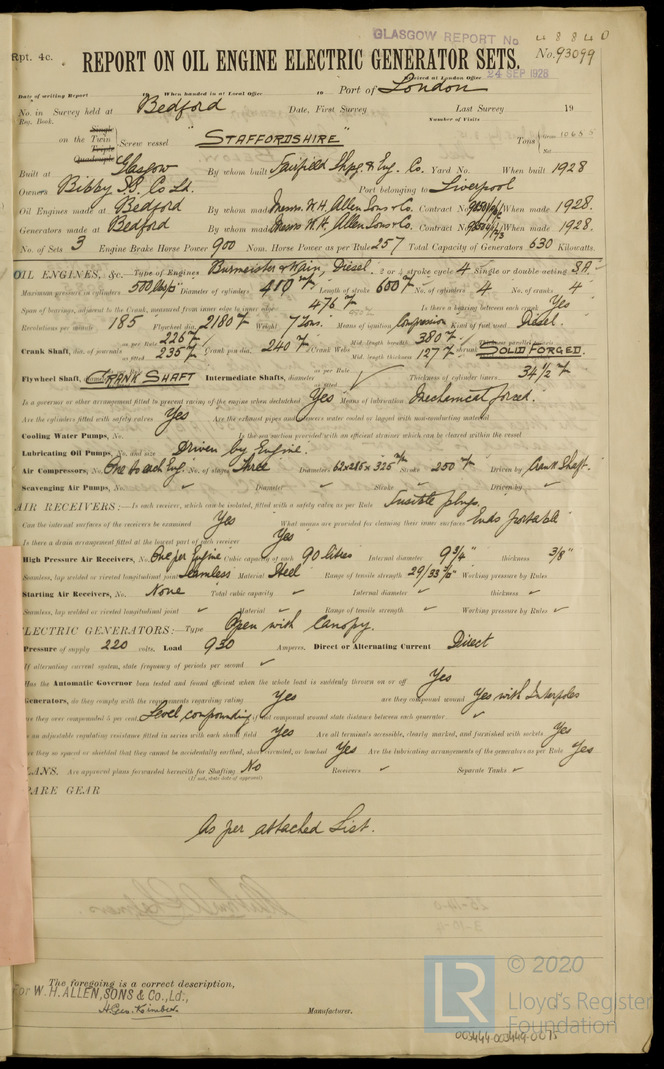 GLASGOW REPORT No 48840
Rpt. 4c. REPORT ON OIL ENGINE ELECTRIC GENERATOR SETS. No. 93099
Received at London Office 24 SEP 1928
Date of writing Report When handed in at Local Office 19 Port of London
No. in Survey held at Bedford Date, First Survey Last Survey 19
Reg. Book. Number of Visits
on the Single Twin Triple Quadruple Screw vessel "STAFFORDSHIRE" Tons Gross Net
Built at Glasgow By whom built Fairfield Shpg. & Eng. Co. Yard No. When built 1928
Owners Bibby S.S. Co Ld. Port belonging to Liverpool
Oil Engines made at Bedford By whom made Messrs W.H. Allen Sons & Co. Contract No. When made 1928.
Generators made at Bedford By whom made Messrs W.H. Allen Sons & Co. Contract No. When made 1928.
No. of Sets 3 Engine Brake Horse Power 900 Nom. Horse Power as per Rule 257 Total Capacity of Generators 630 Kilowatts.
OIL ENGINES, &c.—Type of Engines Burmeister & Wain, Diesel. 2 or 4 stroke cycle 4 Single or double acting SA
Maximum pressure in cylinders 500 Diameter of cylinders Length of stroke 600 No. of cylinders 4 No. of cranks 4
Span of bearings, adjacent to the Crank, measured from inner edge to inner edge 476 Is there a bearing between each crank Yes
Revolutions per minute 185 Flywheel dia. 2180 Weight 7 Tons. Means of ignition Compression Kind of fuel used Diesel.
Crank Shaft, dia. of journals as per Rule 226 as fitted 235 Crank pin dia. 240 Crank Webs Mid. length breadth 380 Mid. length thickness 127 SOLID FORGED.
Flywheel Shaft, CRANK SHAFT Intermediate Shafts, diameter as per Rule as fitted Thickness of cylinder liners 34 1/2
Is a governor or other arrangement fitted to prevent racing of the engine when declutched Yes Means of lubrication Mechanical forced.
Are the cylinders fitted with safety valves Yes Are the exhaust pipes and silencers water cooled or lagged with non-conducting material
Cooling Water Pumps, No. Is the sea suction provided with an efficient strainer which can be cleared within the vessel
Lubricating Oil Pumps, No. and size Driven by Engine.
Air Compressors, No. One to each Eng. No. of stages Three Diameters Stroke 250 Driven by Crank Shaft.
Scavenging Air Pumps, No. Diameter Stroke Driven by
AIR RECEIVERS:—Is each receiver, which can be isolated, fitted with a safety valve as per Rule Fusible plugs.
Can the internal surfaces of the receivers be examined Yes What means are provided for cleaning their inner surfaces Ends portable
Is there a drain arrangement fitted at the lowest part of each receiver Yes
High Pressure Air Receivers, No. One per Engine Cubic capacity of each 90 litres Internal diameter 9 3/4" thickness 3/8"
Seamless, lap welded or riveted longitudinal joint Seamless Material Steel Range of tensile strength 29/33 Working pressure by Rules
Starting Air Receivers, No. None Total cubic capacity Internal diameter thickness
Seamless, lap welded or riveted longitudinal joint Material Range of tensile strength Working pressure by Rules
ELECTRIC GENERATORS:—Type Open with Canopy.
Pressure of supply 220 volts. Load 950 Amperes. Direct or Alternating Current Direct
If alternating current system, state frequency of periods per second
Has the Automatic Governor been tested and found efficient when the whole load is suddenly thrown on or off Yes
Generators, do they comply with the requirements regarding rating Yes are they compound wound Yes with Interpoles
are they over compounded 5 per cent. Level compounding if not compound wound state distance between each generator
is an adjustable regulating resistance fitted in series with each shunt field Yes Are all terminals accessible, clearly marked, and furnished with sockets Yes
Are they so spaced or shielded that they cannot be accidentally earthed, short circuited, or touched Yes Are the lubricating arrangements of the generators as per Rule Yes
PLANS. Are approved plans forwarded herewith for Shafting No Receivers Separate Tanks
(If not, state date of approval)
SPARE GEAR
As per attached List.
The foregoing is a correct description,
For W. H. ALLEN, SONS & Co., Ld.,
Manufacturer.
LR © 2020
Lloyd's Register
Foundation
003444-003449-0075